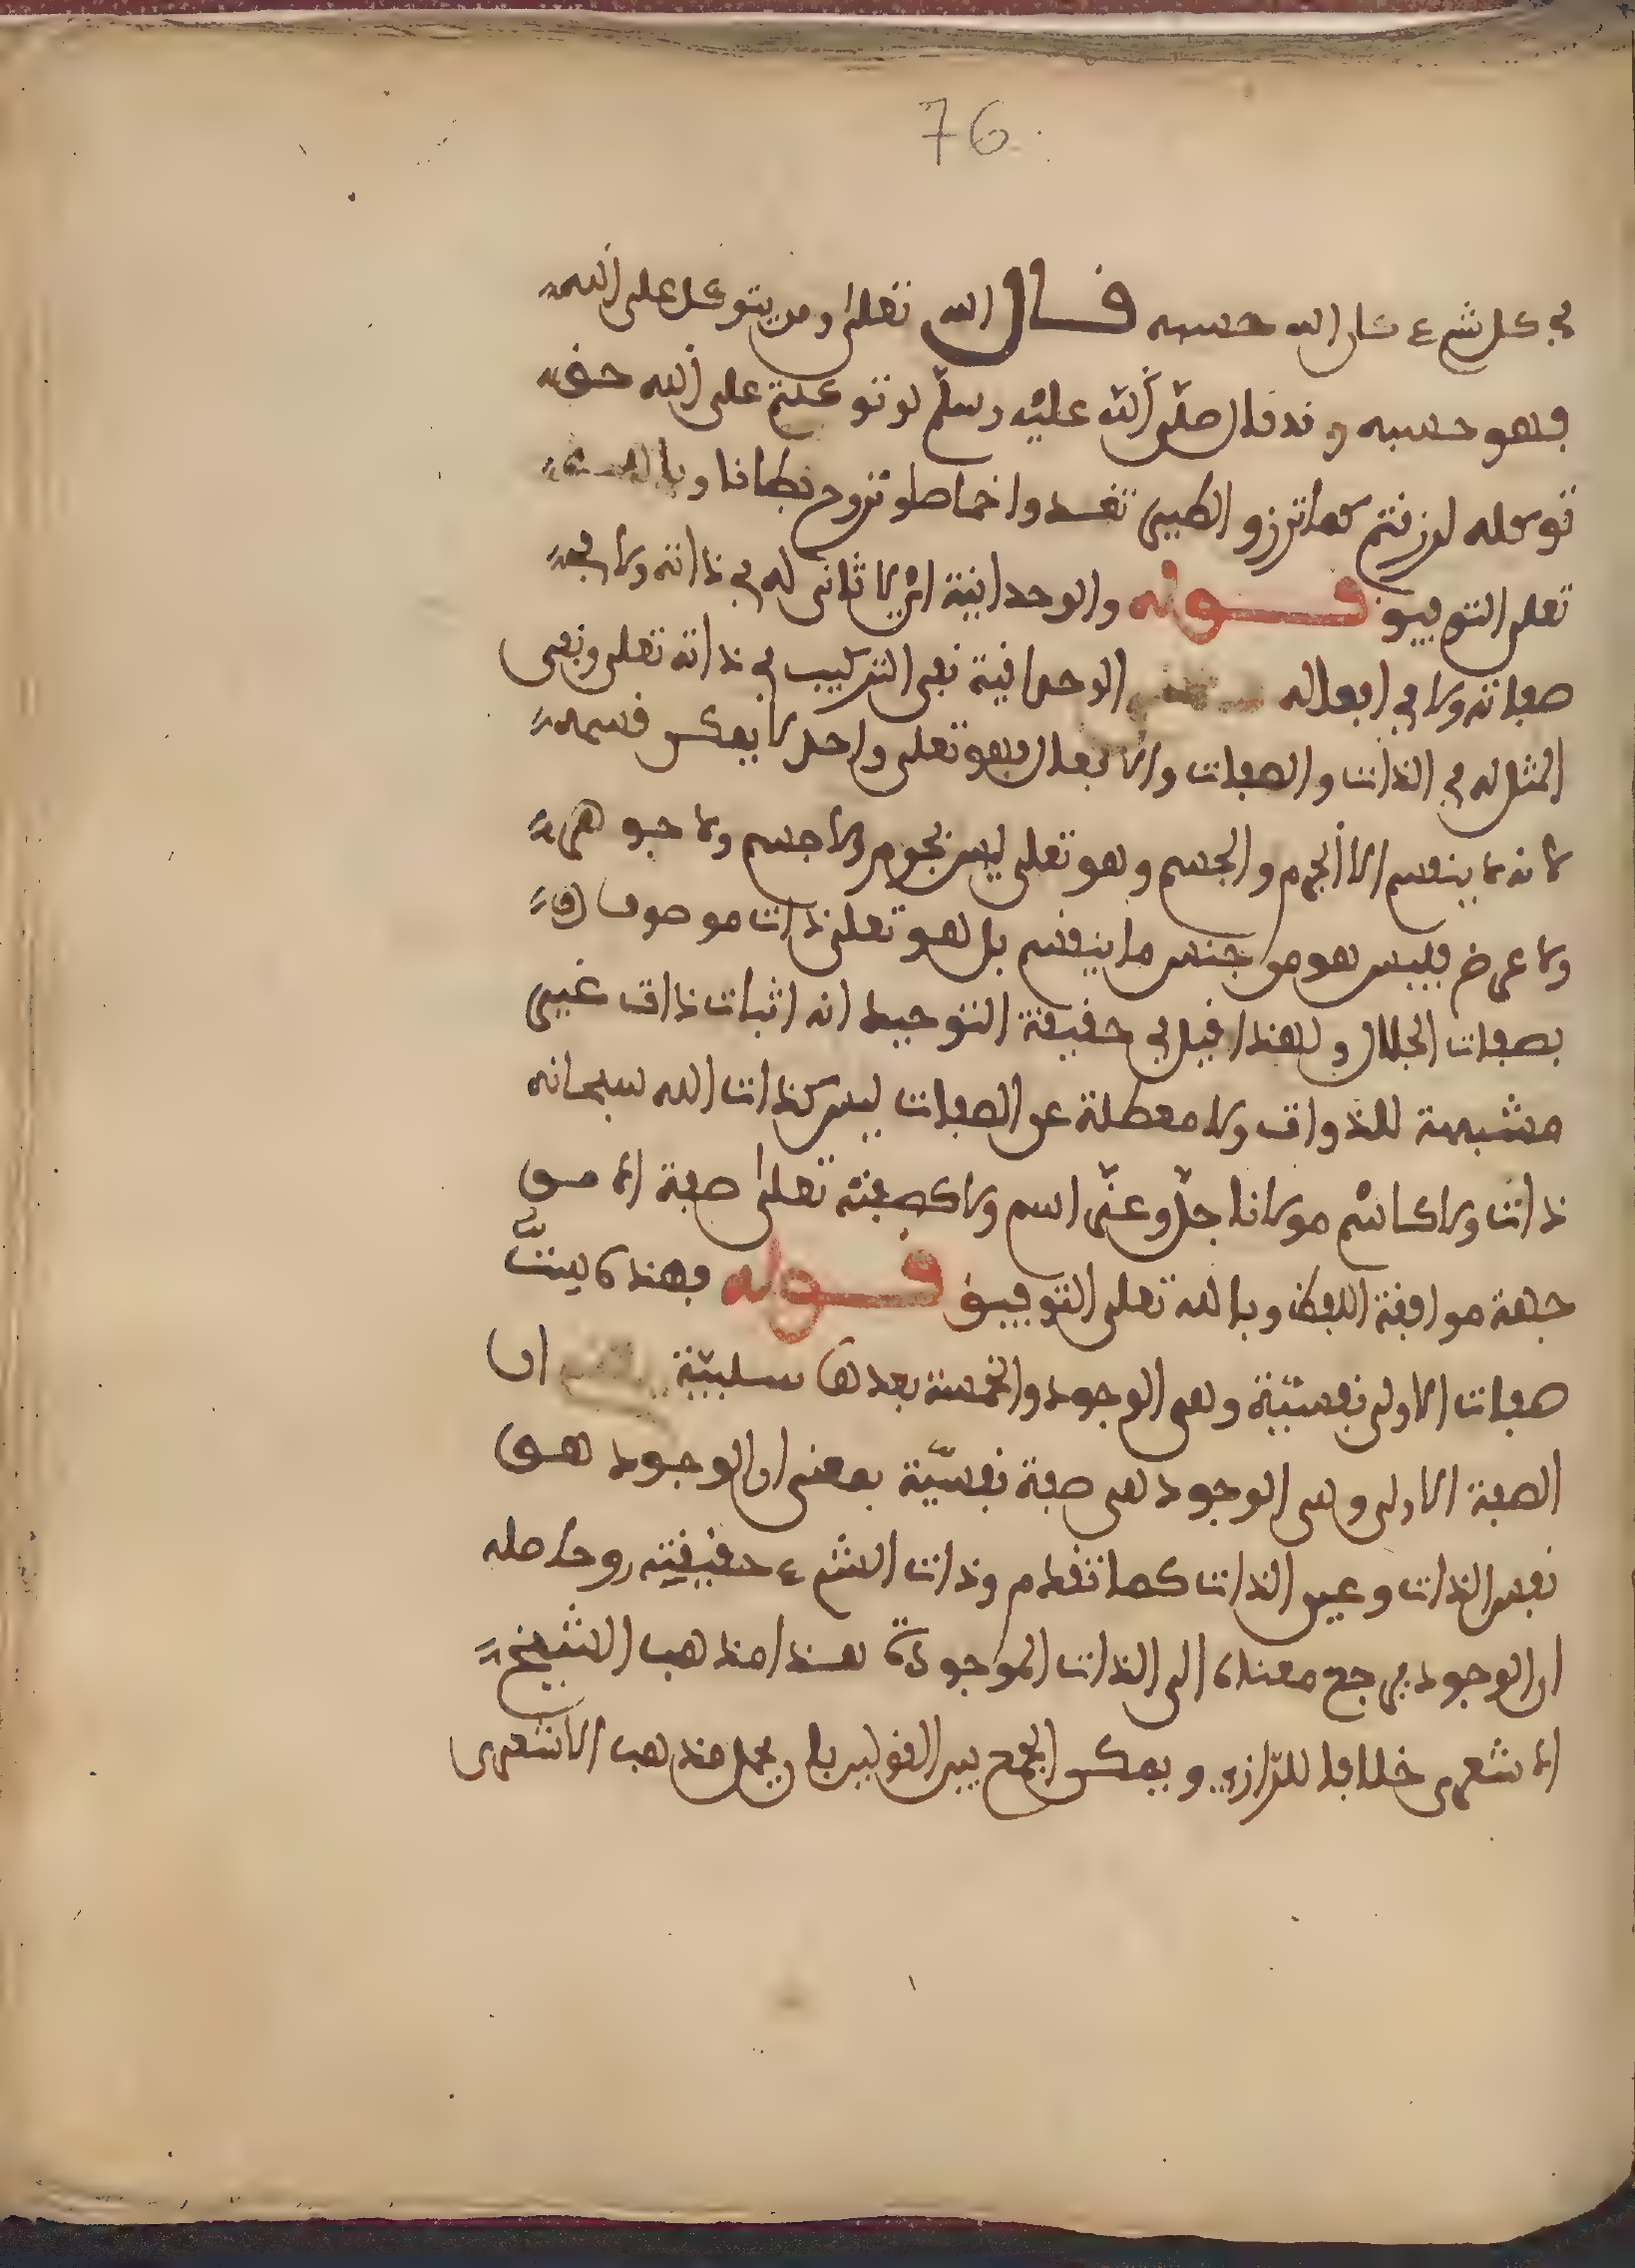 76
في كل شيء كان الله حسبه قال الله تعلى ومن يتوكل على الله
فهو حسبه وقد قال صلّى الله عليْه وسلّم لو توكلتم على الله حق
توكله لرزقتم كما ترزق الطير تغدوا خماصا وتروح بطانا وبالله
تعلى التوفيق قوله والوحدانية اي لا ثاني له في ذاته ولا في
صفاته ولا في افعاله الوحدانية نفي التركيب في ذاته تعلى ونفي
المثل له في الذات والصفات والافعال فهو تعلى واحد لا يمكن قسمه
لانه لا ينقسم الا الجرم والجسم وهو تعلى ليس بجرم ولا جسم ولا جوهر
ولا عرض فليس هو من جنس ما ينقسم بل هو تعلى ذات موصوف
بصفات الجلال ولهذا قيل في حقيقة التوحيد انه اثبات ذات غير
مشبهة للذوات ولا معطلة عن الصفات ليس كذات الله سبحانه
ذات ولا كاسْم مولانا جلّ وعزّ اسم ولا كصفته تعلى صفة الا من
جهة موافقة اللفظ وبالله تعلى التوفيق قوله فهذه ستّ
صفات الاولى نفسيّة وهي الوجود والخمسة بعدها سلبيّة ان
الصفة الاولى وهي الوجود هي صفة نفسيّة بمعنى ان الوجود هو
نفس الذات وعين الذات كما تقدم وذات الشيء حقيقته وحاصله
ان الوجود يرجع معناه الى الذات الموجودة هذا مذهب الشيخ
الاشعري خلافا للرّازي ويمكن الجمع بين القولين بان يحمل مذهب الاشعري